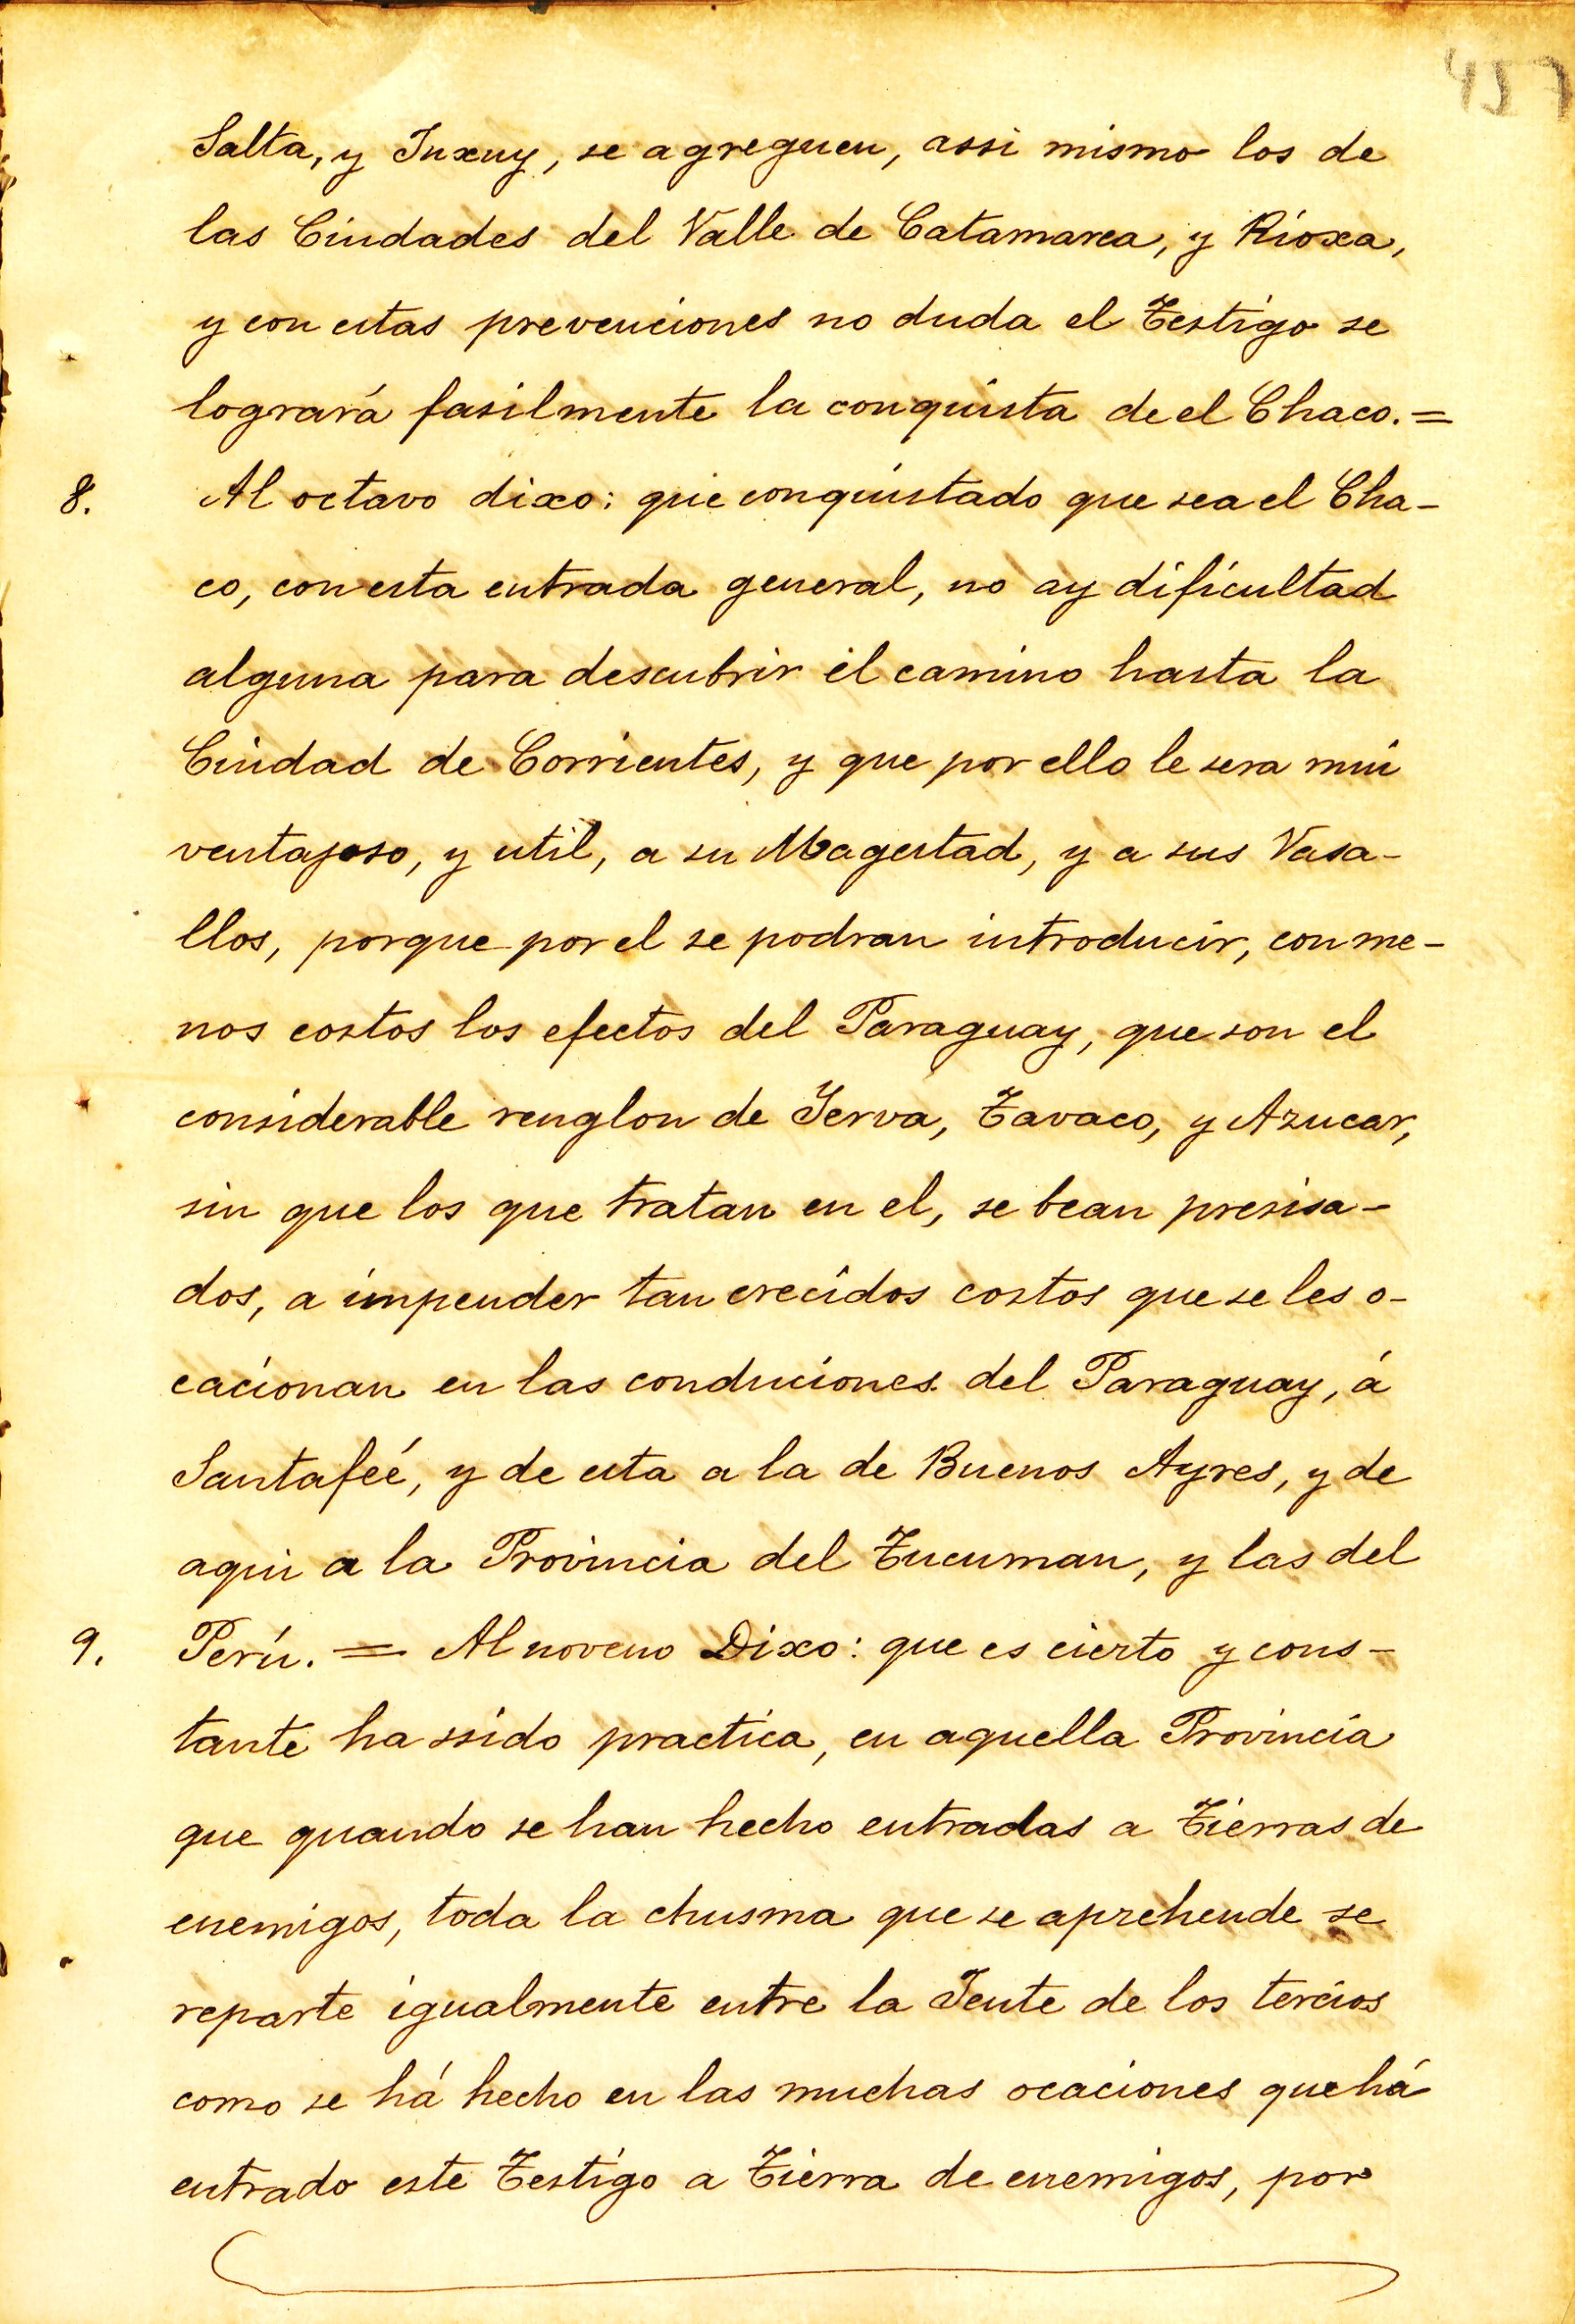 457
Salta, y Juxuy, se agreguen, assi mismo los de
las Ciudades del Valle de Catamarca, y Rioxa,
y con estas prevenciones no duda el Testigo se
logrará fasilmente la conquista de el Chaco. =
8. Al octavo dixo: que conquistado que sea el Cha-
co, con esta entrada general, no ay dificultad
alguna para descubrir el camino hasta la
Ciudad de Corrientes, y que por ello le sera mui
ventajoso, y util, a su Magestad, y a sus Vasa-
llos, porque por el se podran introducir, con me-
nos costos los efectos del Paraguay, que son el
considerable renglon de Yerva, Tavaco, y Azucar,
sin que los que tratan en el, se bean presisa-
dos, a impender tan crecidos costos que se les o-
cacionan en las conduciones del Paraguay, á
Santafeé, y de esta a la de Buenos Ayres, y de
aqui a la Provincia del Tucuman, y las del
9. Perú. = Al noveno Dixo: que es cierto y cons-
tante ha ssido practica, en aquella Provincia
que quando se han hecho entradas a Tierras de
enemigos, toda la chusma que se aprehende se
reparte igualmente entre la Jente de los tercios
como se há hecho en las muchas ocaciones que há
entrado este Testigo a Tierra de enemigos, por